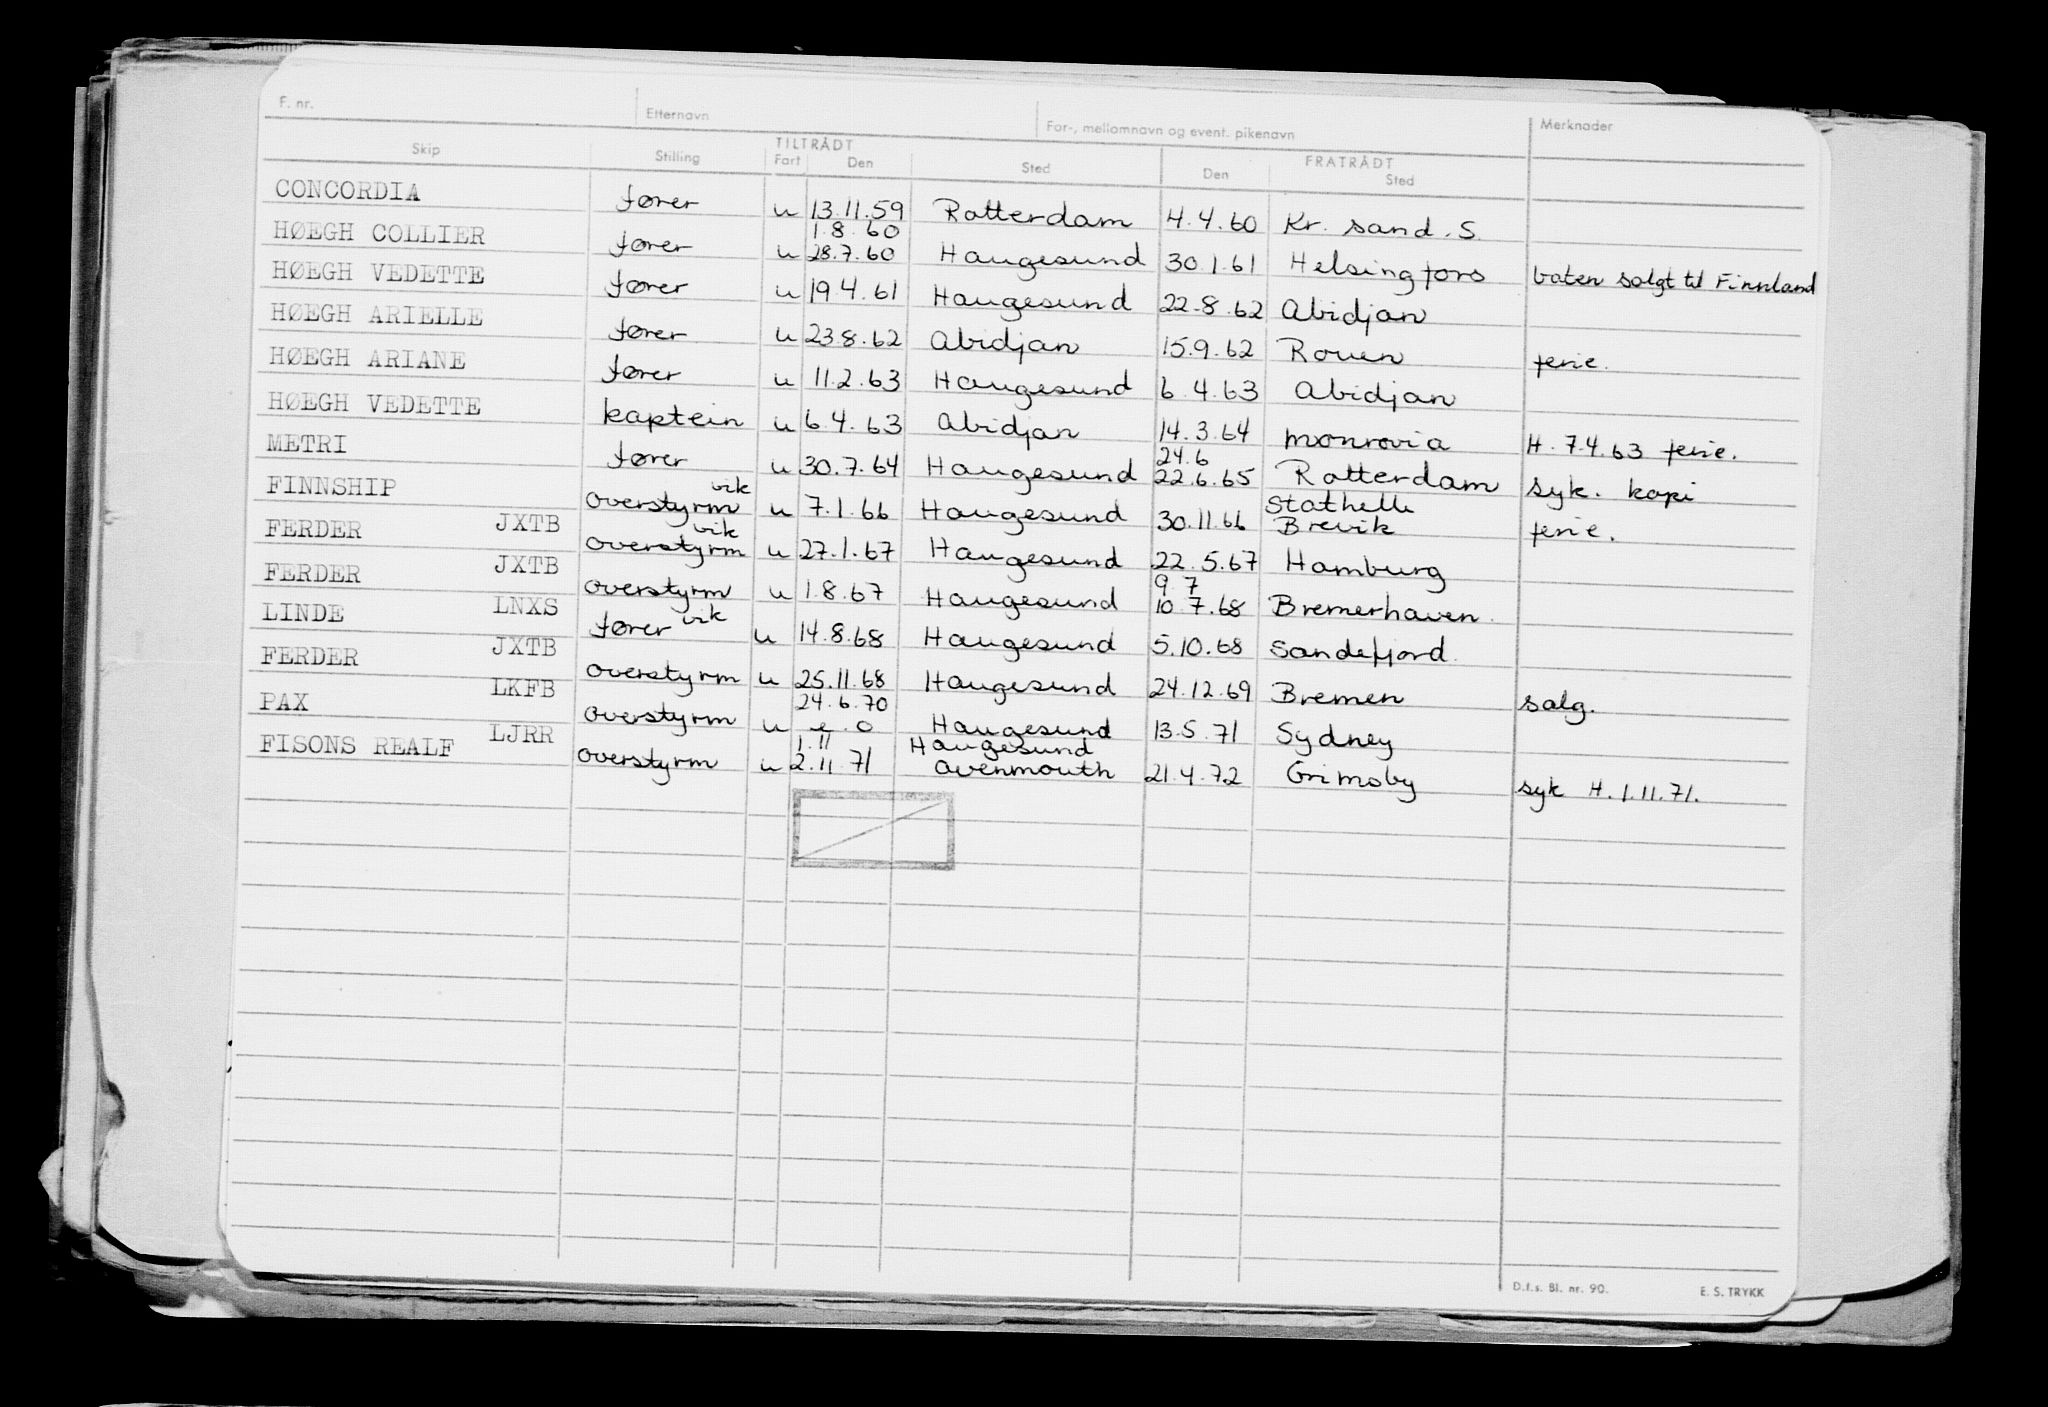 F. nr. Etternavn For-, mellomnavn og event. pikenavn Merknader
TILTRÅDT FRATRÅDT
Skip Stilling Fart Den Sted Den Sted
CONCORDIA fører u 13.11.59 Rotterdam 4.4.60 Kr. sand. S.
1.8.60
HØEGH COLLIER fører u 28.7.60 Haugesund 30.1.61 Helsingfors båten solgt til Finnland
HØEGH VEDETTE fører u 19.4.61 Haugesund 22.8.62 Abidjan
HØEGH ARIELLE fører u 23.8.62 Abidjan 15.9.62 Rouen ferie.
HØEGH ARIANE fører u 11.2.63 Haugesund 6.4.63 Abidjan
HØEGH VEDETTE kaptein u 6.4.63 Abidjan 14.3.64 Monrovia H. 7.4.63 ferie.
24.6
METRI fører u 30.7.64 Haugesund 22.6.65 Rotterdam syk. kopi
vik Stathelle
FINNSHIP overstyrm u 7.1.66 Haugesund 30.11.66 Brevik ferie.
vik
FERDER JXTB overstyrm u 27.1.67 Haugesund 22.5.67 Hamburg
9 7
FERDER JXTB overstyrm u 1.8.67 Haugesund 10.7.68 Bremerhaven.
LINDE LNXS fører vik u 14.8.68 Haugesund 5.10.68 Sandefjord.
FERDER JXTB overstyrm u 25.11.68 Haugesund 24.12.69 Bremen salg.
24.6.70
PAX LKFB overstyrm u e.o Haugesund 13.5.71 Sydney
1.11 Haugesund
FISONS REALF LJRR overstyrm u 2.11.71 Avenmouth 21.4.72 Grimsby syk H. 1.11.71.
D.f.s. Bl. nr. 90. E. S. TRYKK